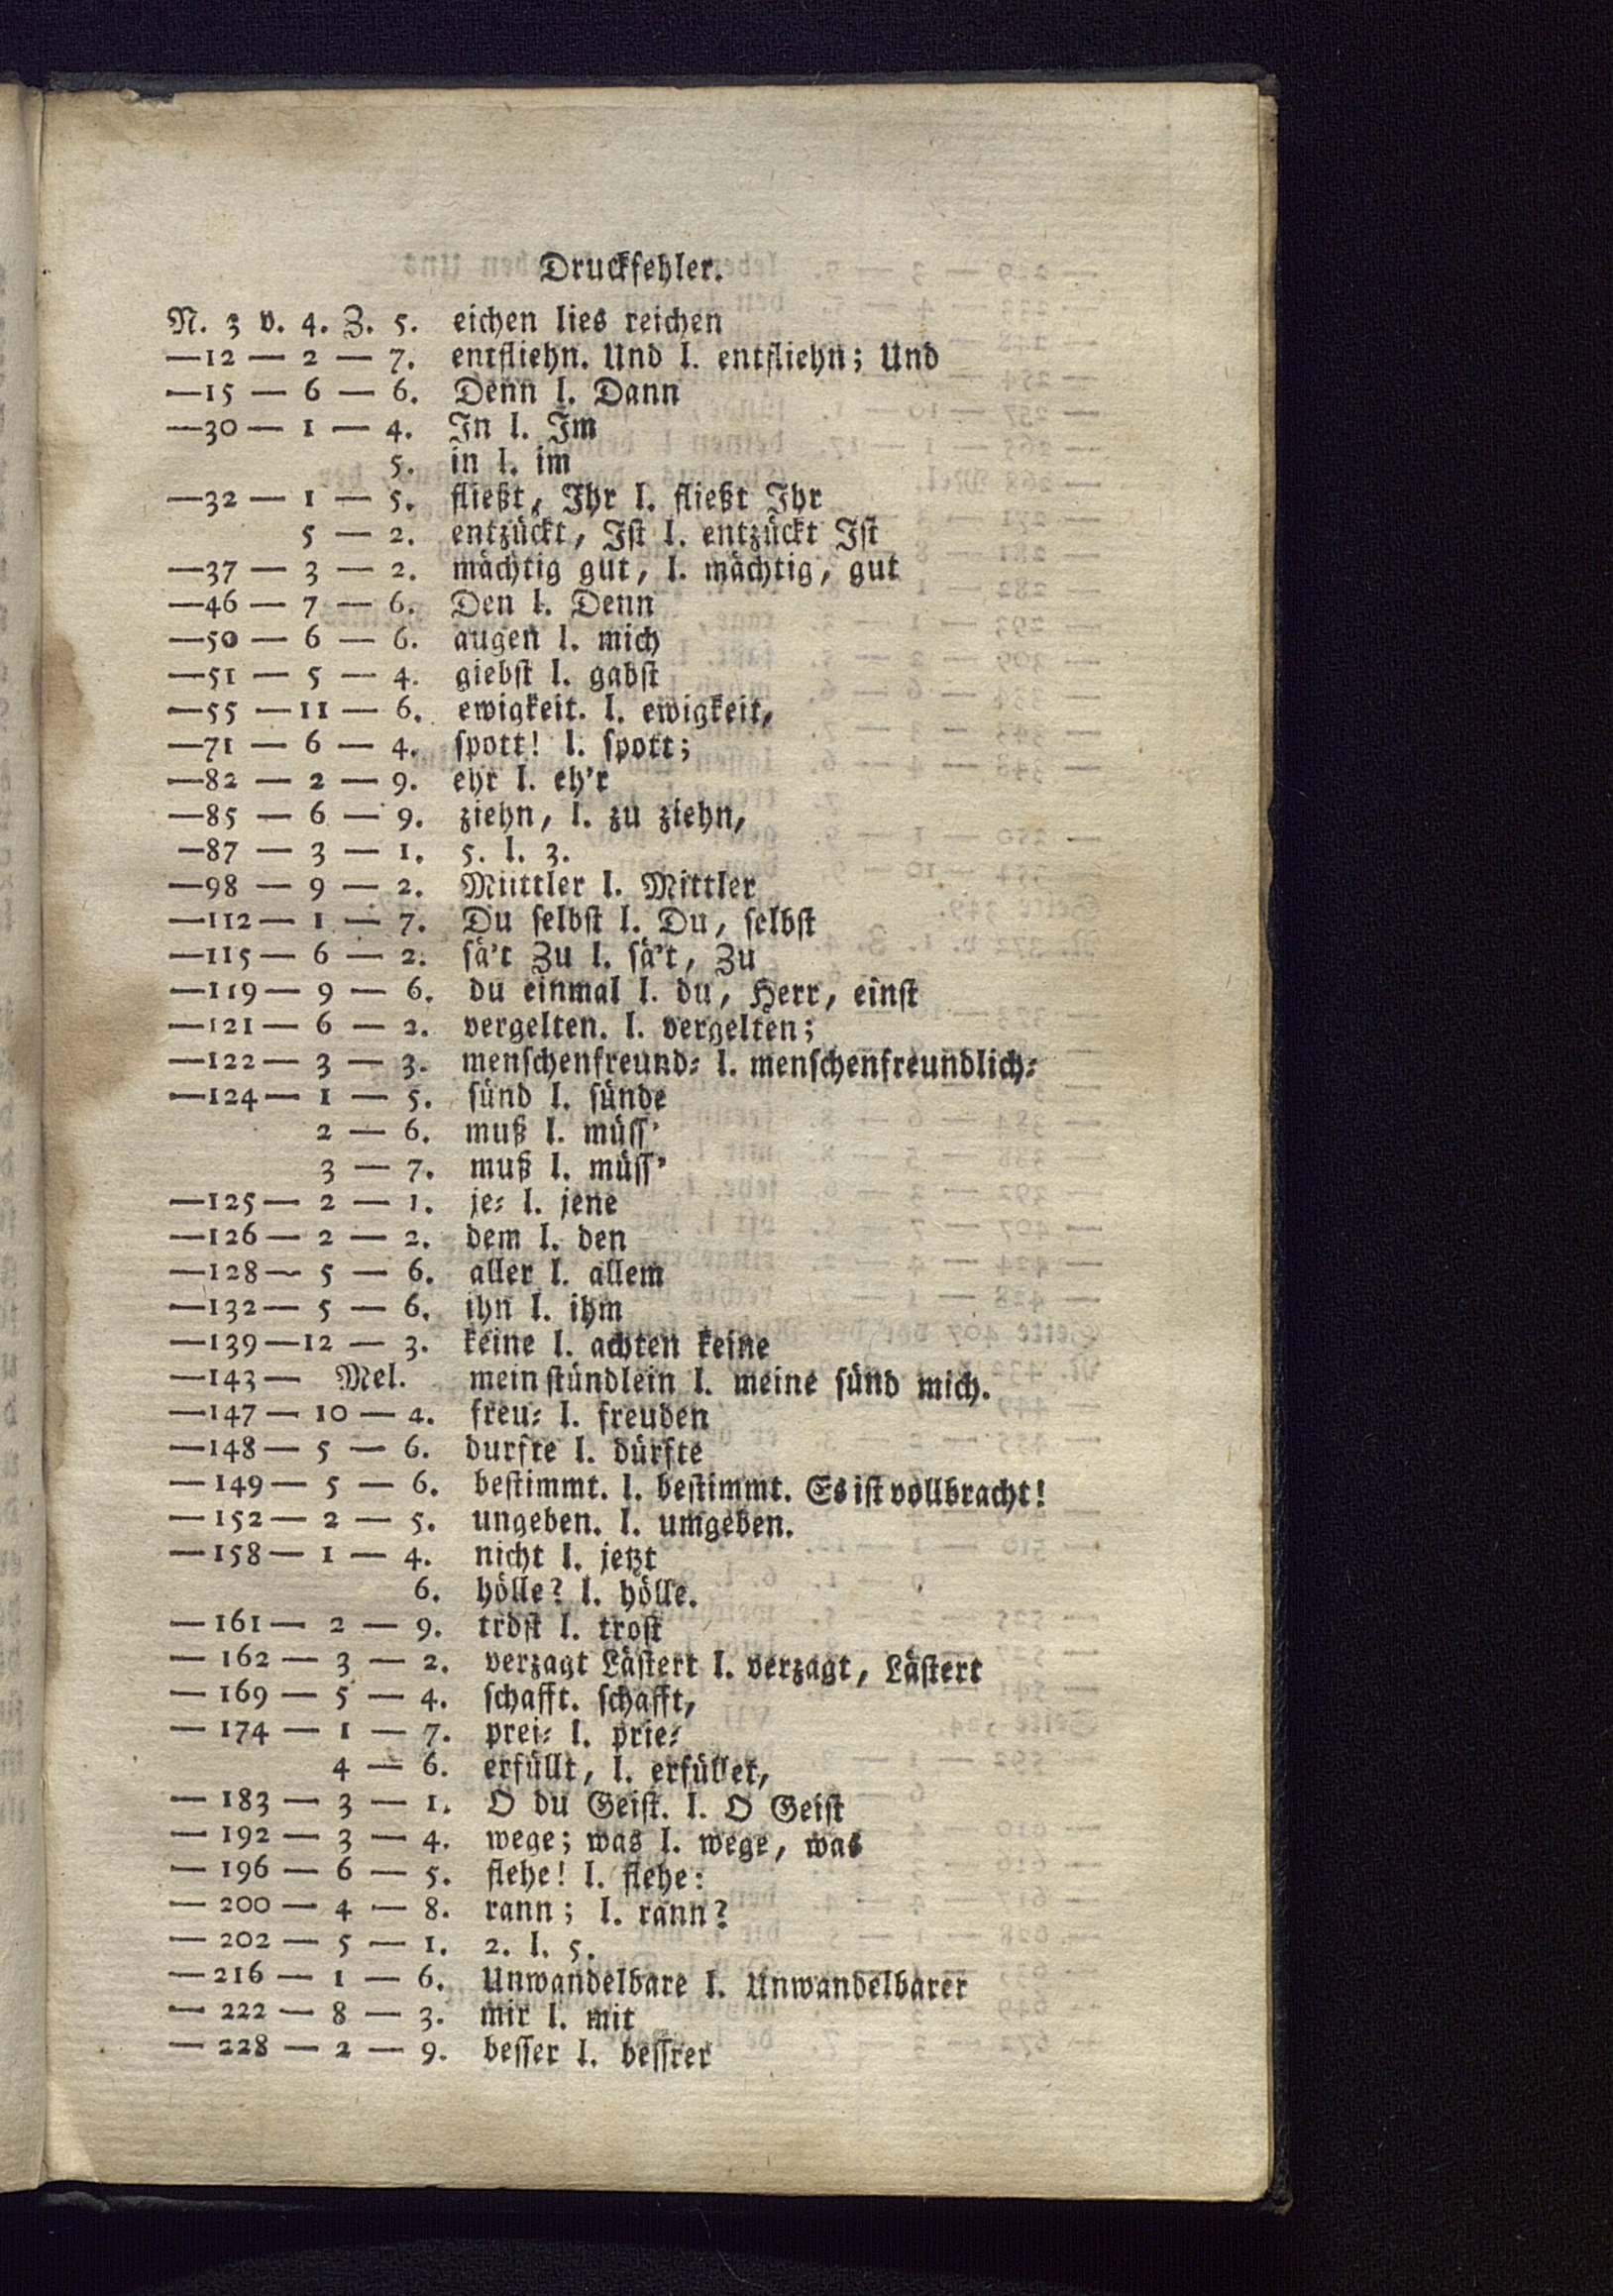 Druckfehler.
N. 3 v. 4. Z. 5. eichen lies reichen
—12 — 2 — 7. entfliehn. Und l. entfliehn; Und
—15 — 6 — 6. Denn l. Dann
—30 — 1 — 4. In l. Im
5. in l. im
—32 — 1 — 5. fließt, Ihr l. fließt Ihr
5 — 2. entzückt, Ist l. entzückt Ist
—37 — 3 — 2. mächtig gut, l. mächtig, gut
—46 — 7 — 6. Den l. Denn
—50 — 6 — 6. augen l. mich
—51 — 5 — 4. giebst l. gabst
—55 — 11 — 6. ewigkeit. l. ewigkeit,
—71 — 6 — 4. spott! l. spott;
—82 — 2 — 9. ehr l. eh'r
—85 — 6 — 9. ziehn, l. zu ziehn,
—87 — 3 — 1. 5. l. 3.
—98 — 9 — 2. Müttler l. Mittler
—112— 1 — 7. Du selbst l. Du, selbst
—115— 6 — 2. sä't Zu l. sä't, Zu
—119— 9 — 6. du einmal l. du, Herr, einst
—121— 6 — 2. vergelten. l. vergelten;
—122— 3 — 3. menschenfreund⸗ l. menschenfreundlich⸗
—124— 1 — 5. sünd l. sünde
2 — 6. muß l. müss'
3 — 7. muß l. müss'
—125— 2 — 1. je⸗ l. jene
—126— 2 — 2. dem l. den
—128— 5 — 6. aller l. allem
—132— 5 — 6. ihn l. ihm
—139—12 — 3. keine l. achten keine
—143— Mel. mein stündlein l. meine sünd mich.
—147— 10 — 4. freu⸗ l. freuden
—148— 5 — 6. durfte l. dürfte
— 149— 5 — 6. bestimmt. l. bestimmt. Es ist vollbracht!
— 152— 2 — 5. ungeben. l. umgeben.
— 158— 1 — 4. nicht l. jetzt
6. hölle? l. hölle.
— 161— 2 — 9. tröst l. trost
— 162 — 3 — 2. verzagt Lästert l. verzagt, Lästert
— 169 — 5 — 4. schafft. schafft,
— 174 — 1 — 7. prei⸗ l. prie⸗
4 — 6. erfüllt, l. erfüllet,
— 183 — 3 — 1. O du Geist. l. O Geist
— 192 — 3 — 4. wege; was l. wege, was
— 196 — 6 — 5. flehe! l. flehe:
— 200 — 4 — 8. rann; l. rann?
— 202 — 5 — 1. 2. l. 5.
— 216 — 1 — 6. Unwandelbare l. Unwandelbarer
— 222 — 8 — 3. mir l. mit
— 228 — 2 — 9. besser l. bessrer